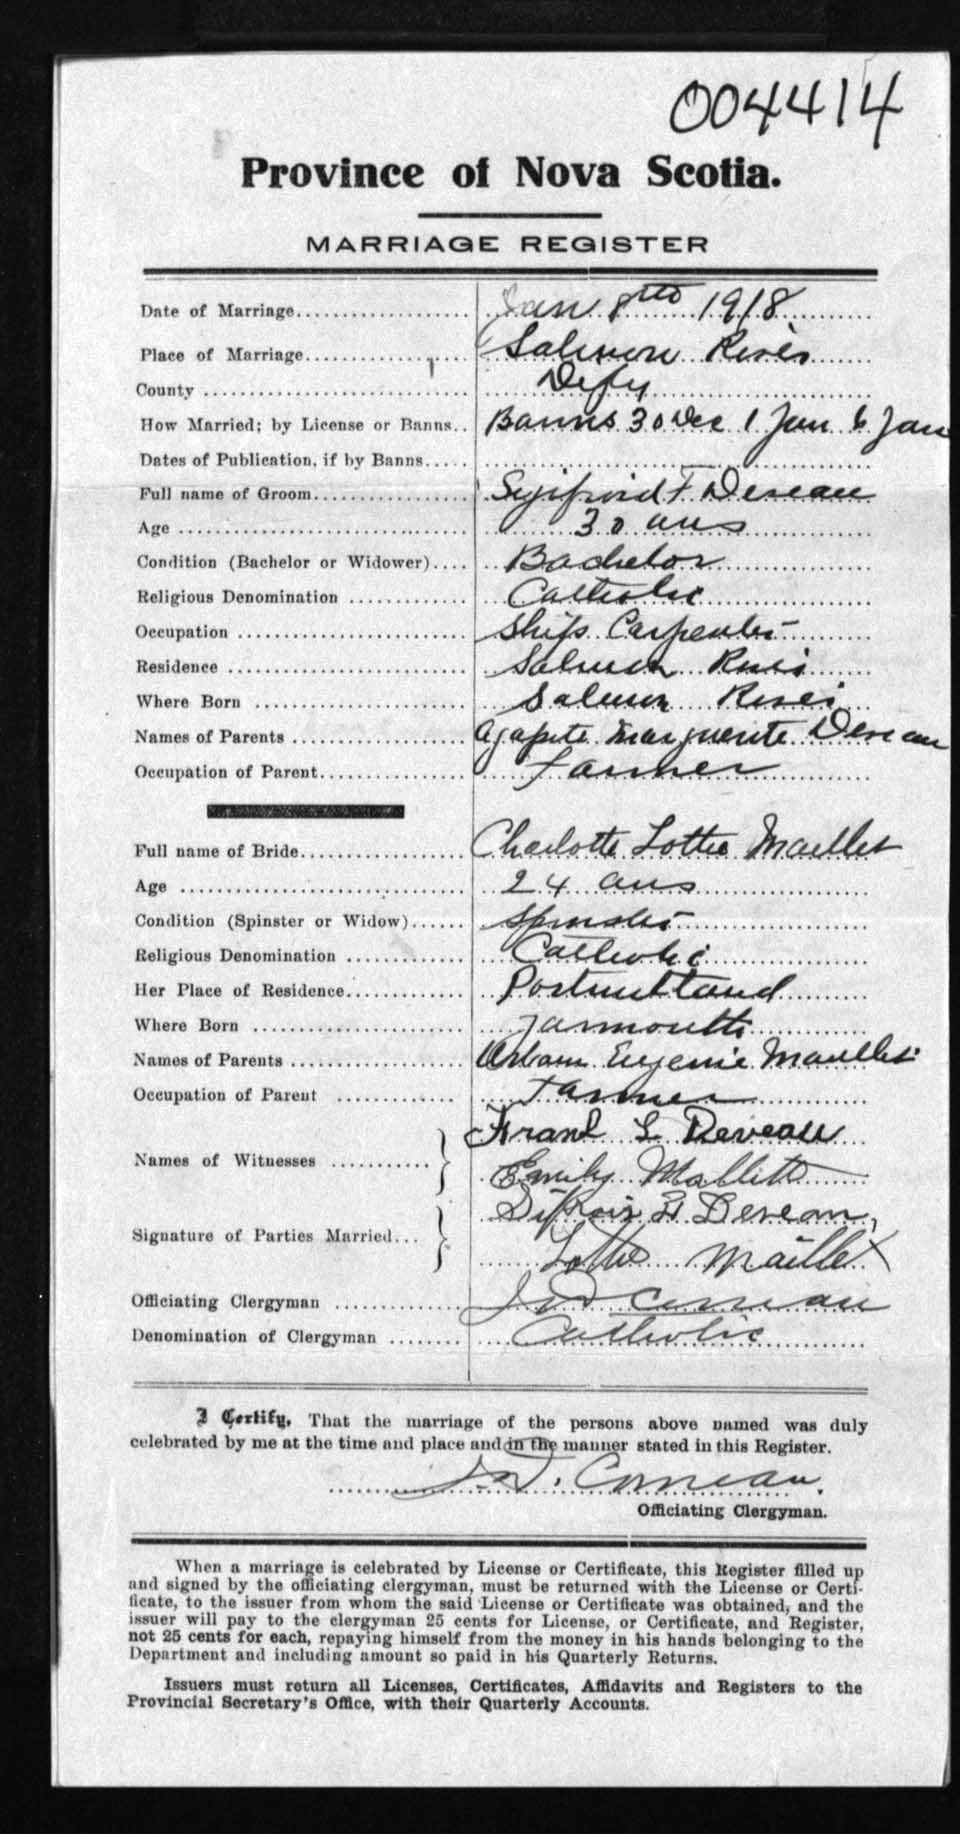 004414
Province of Nova Scotia.
MARRIAGE REGISTER
Date of Marriage Jan 8th 1918
Place of Marriage Salmon River
County Digby
How Married; by License or Banns Banns 30 Dec 1 Jan 6 Jan
Dates of Publication, if by Banns
Full name of Groom F Deveau
Age 30 ans
Condition (Bachelor or Widower) Bachelor
Religious Denomination Catholic
Occupation Ship Carpenter
Residence Salmon River
Where Born Salmon River
Names of Parents Agapite Marguerite Deveau
Occupation of Parent Farmer
Full name of Bride Charlotte Lottie Maillet
Age 24 ans
Condition (Spinster or Widow) Spinster
Religious Denomination Catholic
Her Place of Residence
Where Born Yarmouth
Names of Parents Urbain Eugenie Maillet
Occupation of Parent Farmer
Names of Witnesses Frank L Deveau
Emily Mallett
Signature of Parties Married Deveau,
Lottie Maillet X
Officiating Clergyman Comeau
Denomination of Clergyman Catholic
I Certify, That the marriage of the persons above named was duly
celebrated by me at the time and place and in the manner stated in this Register.
J. D. Comeau.
Officiating Clergyman.
When a marriage is celebrated by License or Certificate, this Register filled up
and signed by the officiating clergyman, must be returned with the License or Certi-
ficate, to the issuer from whom the said License or Certificate was obtained, and the
issuer will pay to the clergyman 25 cents for License, or Certificate, and Register,
not 25 cents for each, repaying himself from the money in his hands belonging to the
Department and including amount so paid in his Quarterly Returns.
Issuers must return all Licenses, Certificates, Affidavits and Registers to the
Provincial Secretary's Office, with their Quarterly Accounts.